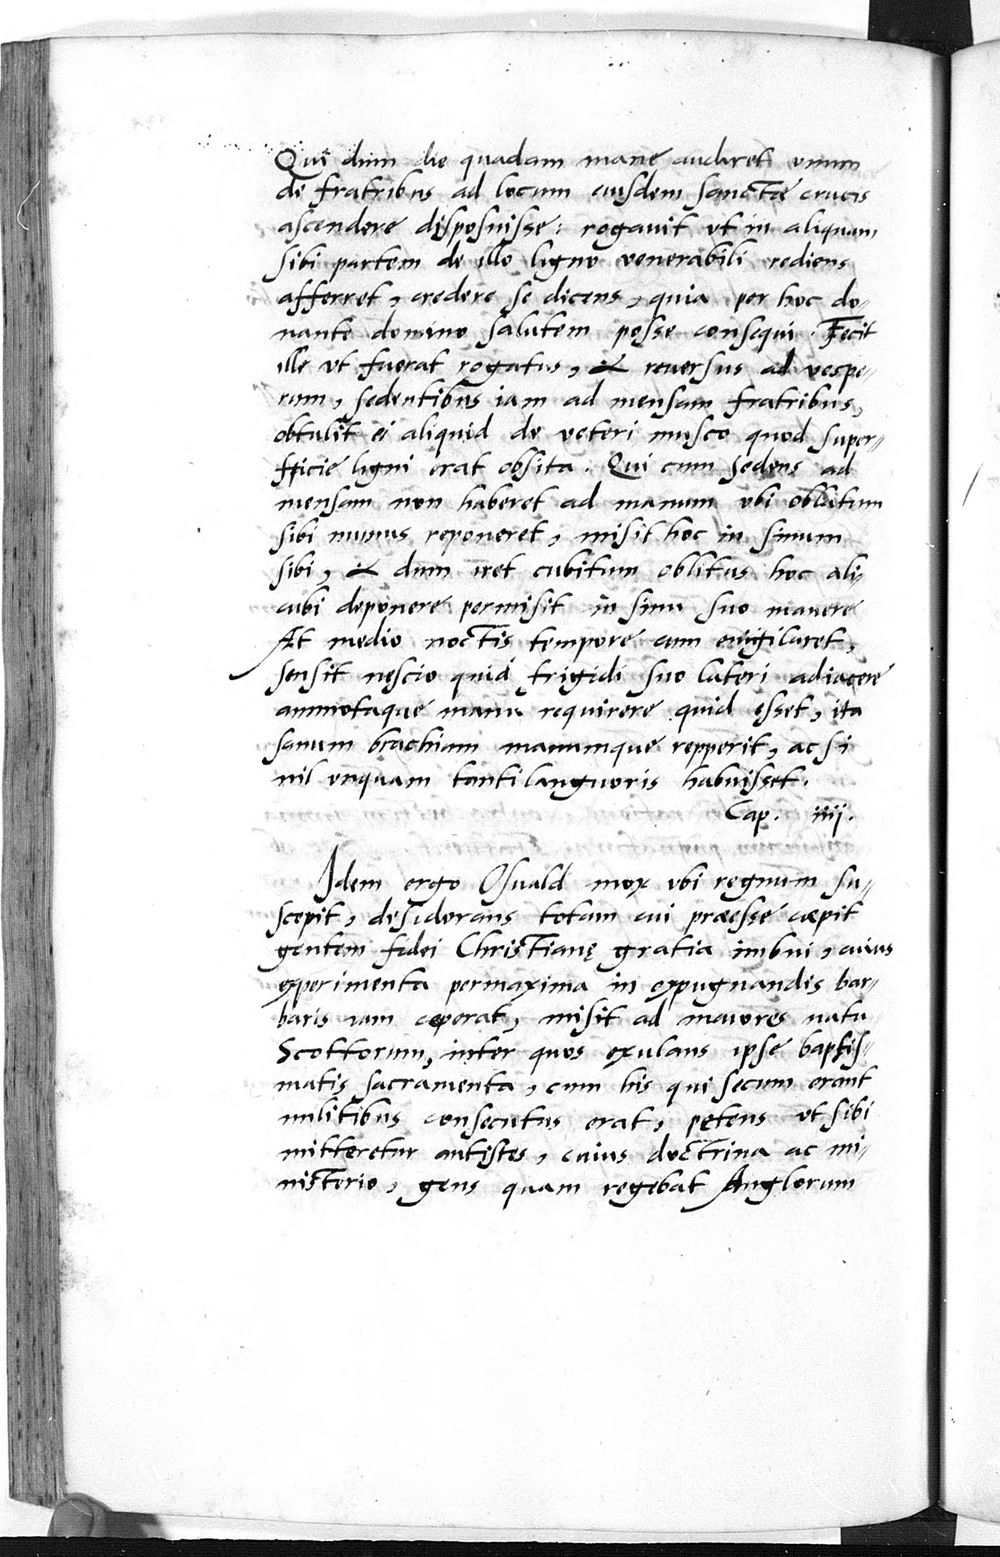 Qui dum die quadam mane audiret unum
de fratribus ad locum eiusdem sanctæ crucis
ascendere disposuisse: rogauit ut in aliquam
sibi partem de illo ligno uenerabili rediens
afferret, credere se dicens, quia per hoc do-
nante domino salutem posse consequi. Fecit
ille ut fuerat rogatus, & reuersus ad uespe-
rum, sedentibus iam ad mensam fratribus,
obtulit ei aliquid de ueteri musco quod super-
fficie ligni erat obsita. Qui cum sedens ad
mensam non haberet ad manum ubi oblatum
sibi munus reponeret, misit hoc in sinum
sibi, & dum iret cubitum oblitus hoc ali-
cubi deponere permisit in sinu suo manere
At medio noctis tempore cum euigilaret,
sensit nescio quid frigidi suo lateri adiacere
ammotaque manu requirere quid esset, ita
sanum brachium manumque repperit, ac si
nil unquam tanti languoris habuisset.
Cap. iiij.
Idem ergo Osuald mox ubi regnum su-
scepit, desiderans totam cui præesse cæpit
gentem fidei Christianę gratia imbui, cuius
experimenta permaxima in expugnandis bar-
baris iam ceperat, misit ad maiores natu
Scottorum, inter quos exulans ipse baptis-
matis sacramenta, cum his qui secum erant
militibus consecutus erat, petens ut sibi
mitteretur antistes, cuius doctrina ac mi-
nisterio, gens quam regebat Anglorum